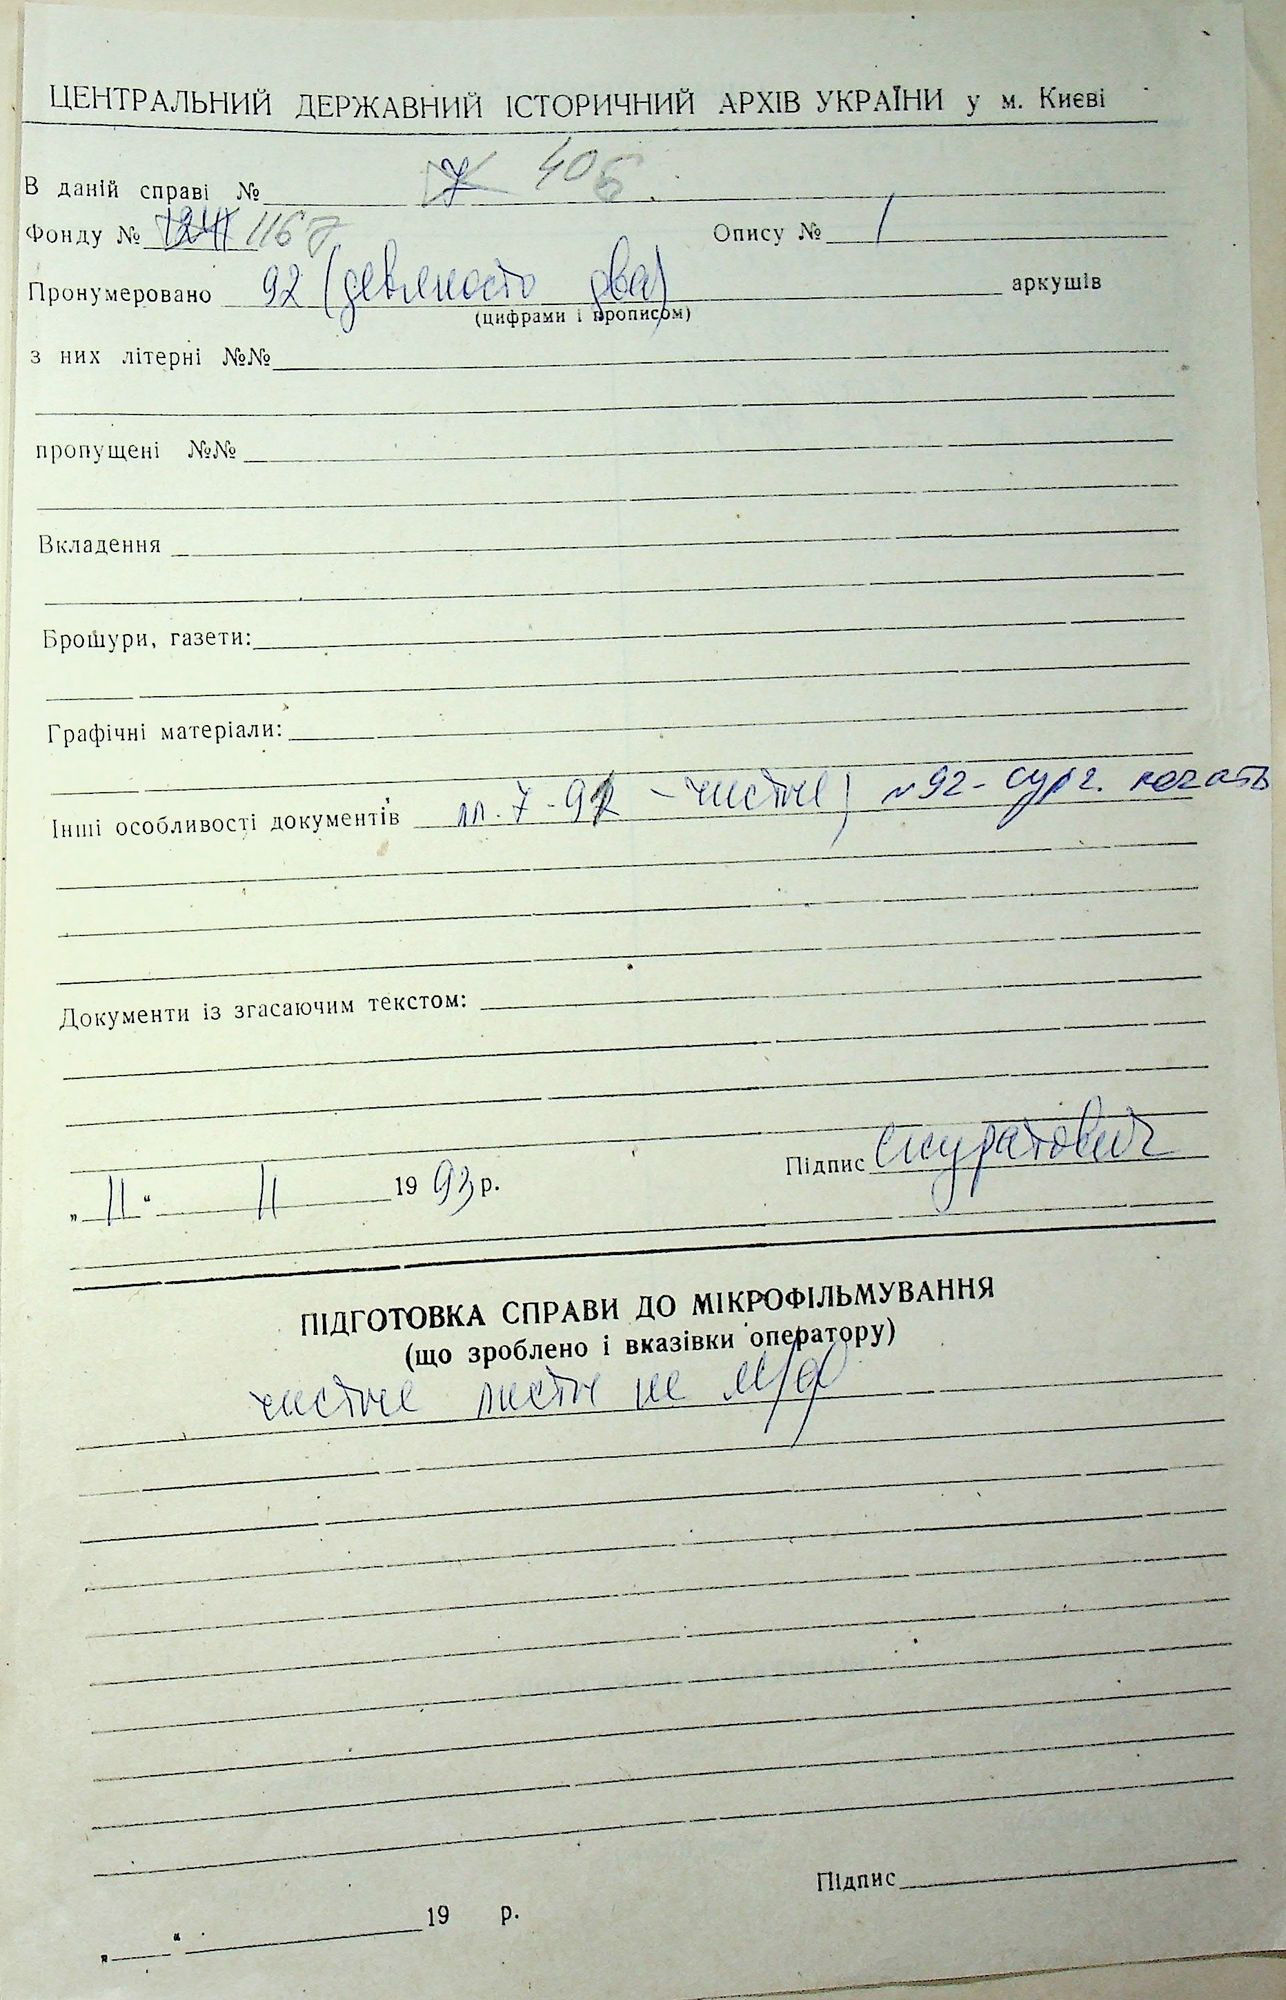 ЦЕНТРАЛЬНИЙ ДЕРЖАВНИЙ ІСТОРИЧНИЙ АРХІВ УКРАЇНИ у м. Києві
В даній справі № 7 406
Фонду № 1167 Опису № 1
Пронумеровано 92 (девяносто два) аркушів
(цифрами і прописом)
з них літерні №№
пропущені №№
Вкладення
Брошури, газети:
Графічні матеріали:
Інші особливості документів лл. 7-91 - чистые, л 92 - сург. печать
Документи із згасаючим текстом:
Підпис Скуратович
„ 11 “ 11 19 93 р.
ПІДГОТОВКА СПРАВИ ДО МІКРОФІЛЬМУВАННЯ
(що зроблено і вказівки оператору)
чистые листы не м/ф
Підпис
„ “ 19 р.